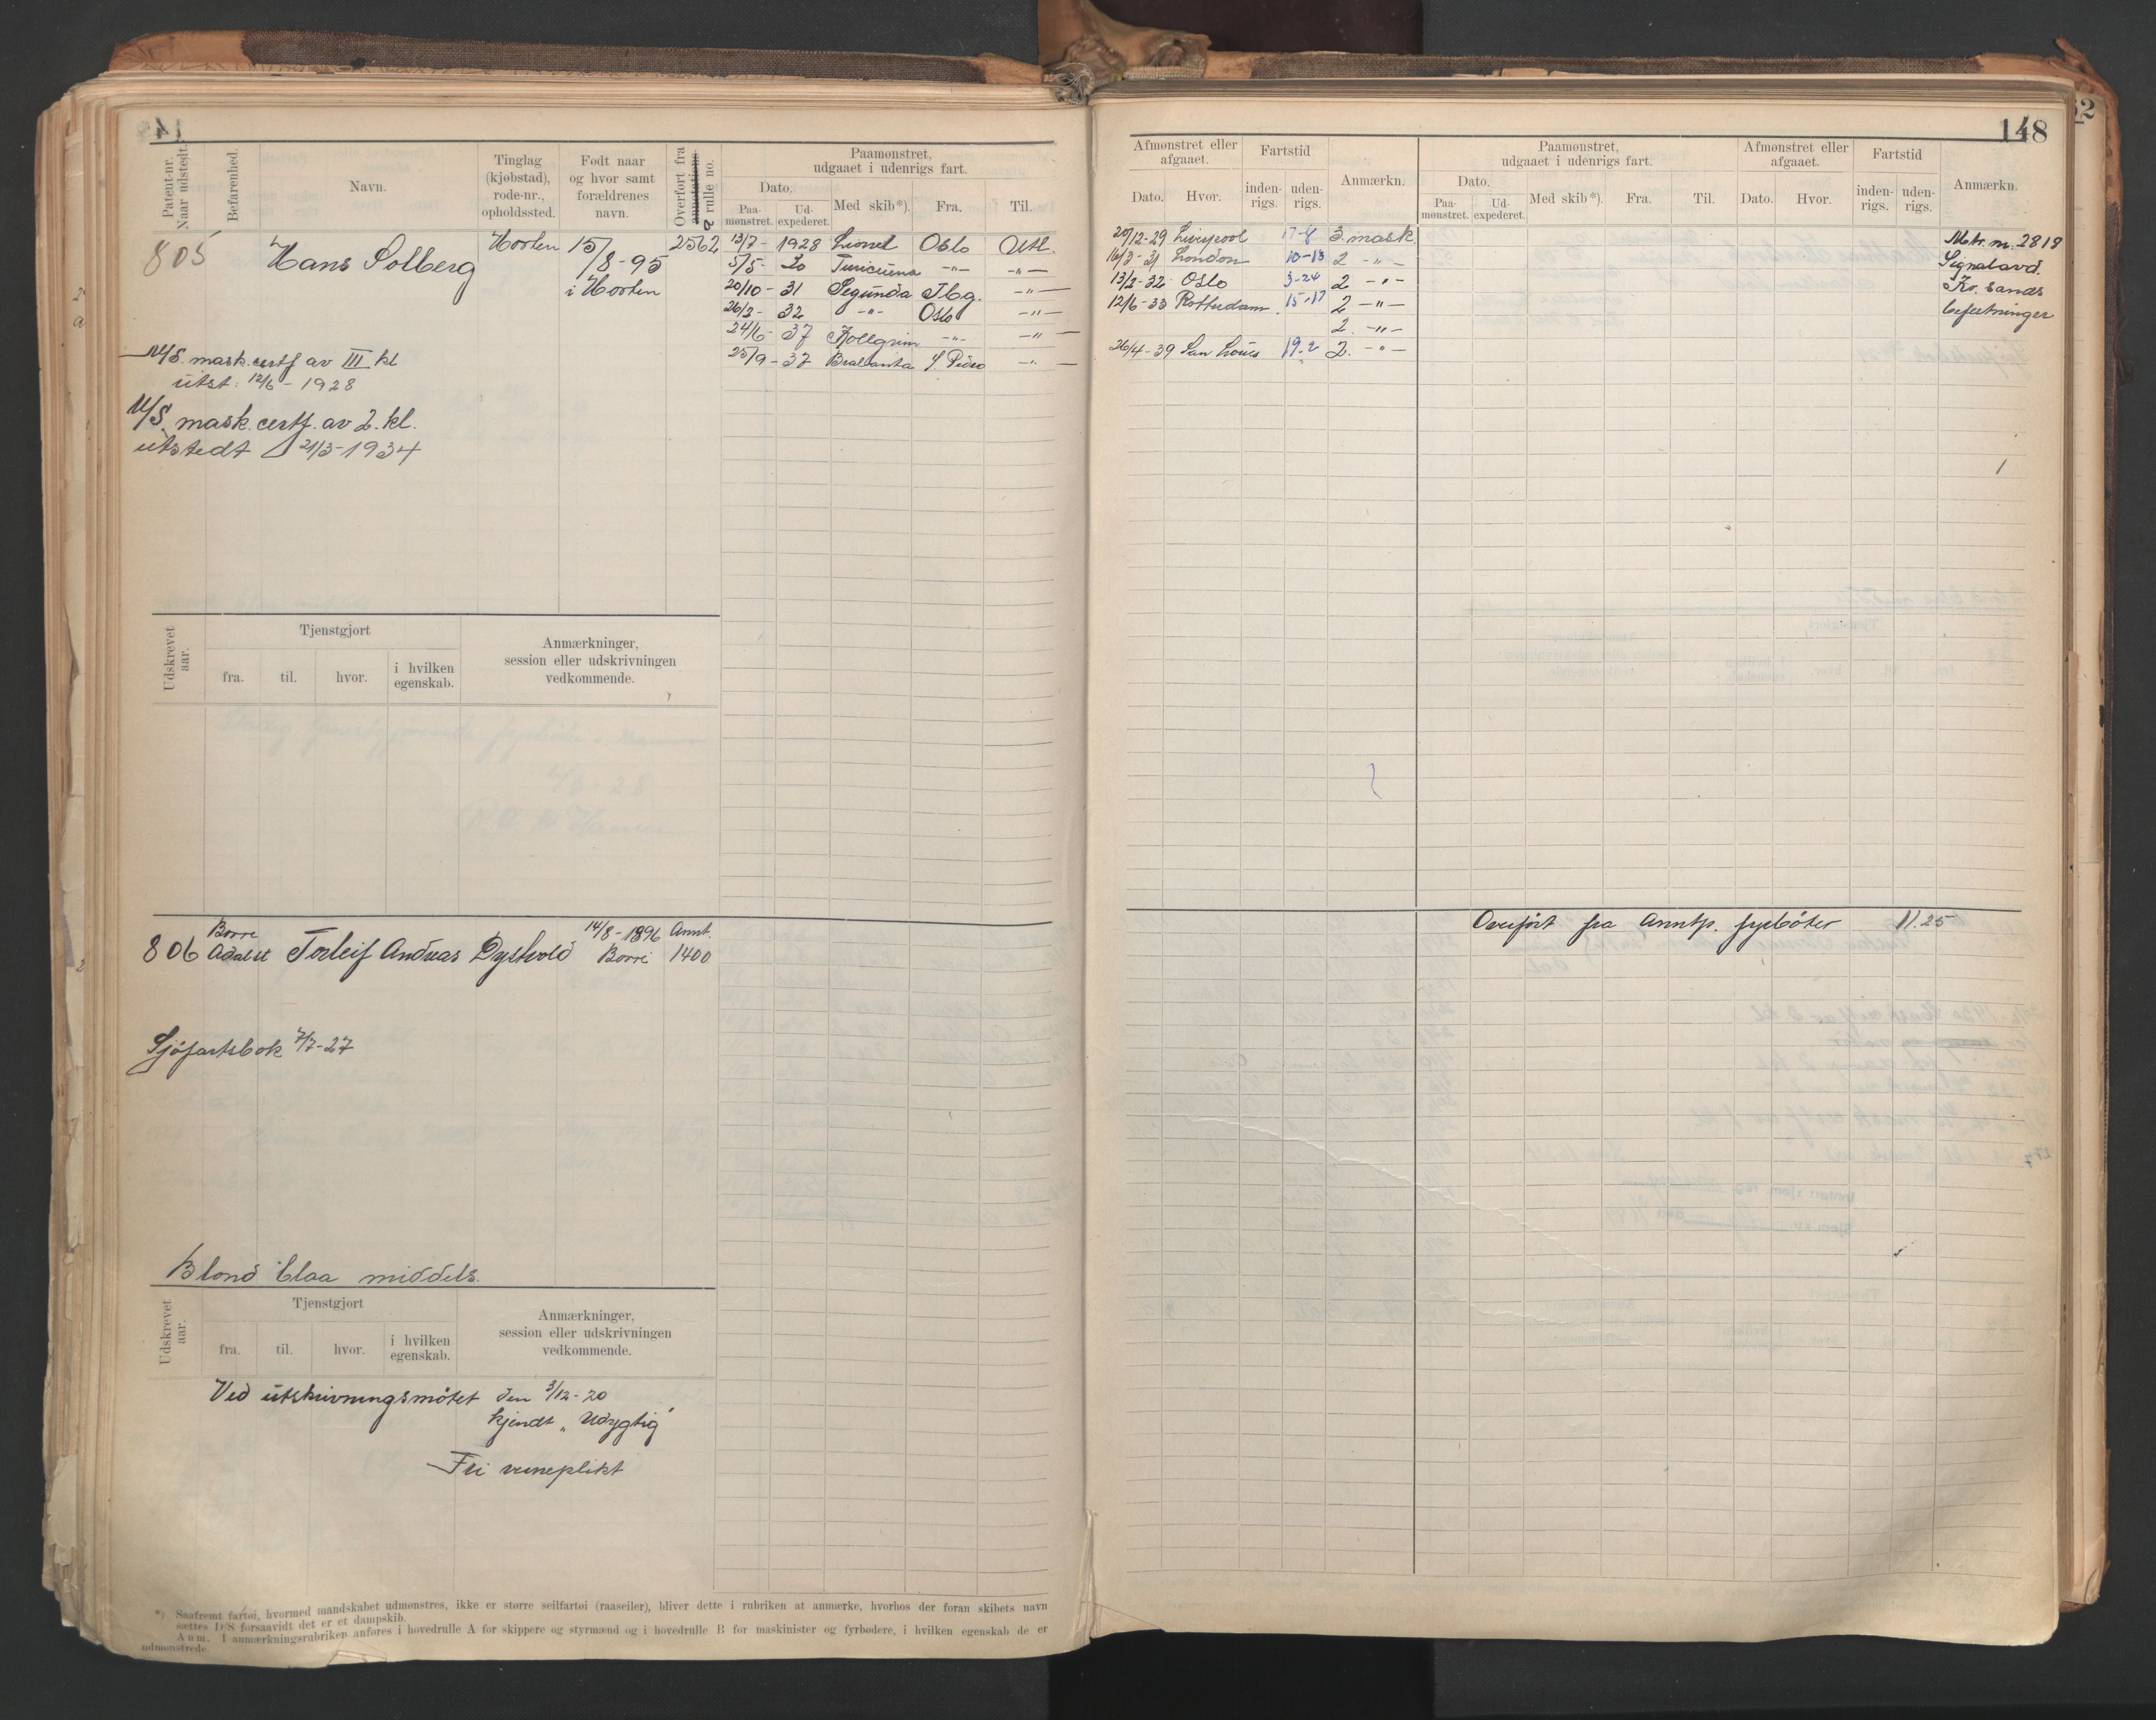 148
Patent-nr. Naar udstedt.
Befarenhed.
Navn.
Tinglag (kjøbstad), rode-nr., opholdssted.
Født naar og hvor samt forældrenes navn.
Overført fra annotations rulle no.
Paamønstret, udgaaet i udenrigs fart.
Dato.
Paa-mønstret.
Ud-expederet.
Med skib*).
Fra.
Til.
805
Hans Solberg
Horten
15/8-95
i Horten
2562
13/7 - 1928 Lionel Oslo Utl.
5/5 - 30 -"- -"-
20/10 - 31 Segunda Tbg. -"-
26/2 - 32 -"- Oslo -"-
24/6 - 37 Kollgrim -"- -"-
25/9 - 37 Brabanta S Pedro -"-
M/S. mask.certf av III kl
utst. 12/6 - 1928
M/S. mask.certf. av 2. kl.
utstedt 21/3-1934
Udskrevet aar.
Tjenstgjort
fra.
til.
hvor.
i hvilken egenskab.
Anmærkninger, session eller udskrivningen vedkommende.
806
Borre
Adalst
Torleif Andreas Dyshold
14/8-1896
Borre
Annt.
1400
Sjøfartsbok 7/7-27
Blond blaa middels.
Udskrevet aar.
Tjenstgjort
fra.
til.
hvor.
i hvilken egenskab.
Anmærkninger, session eller udskrivningen vedkommende.
Ved utskrivningsmøtet den 3/12-20
kjendt "Udygtig"
Fri verneplikt
*) Saafremt fartøi, hvormed mandskabet udmønstres, ikke er større seilfartøi (raaseiler), bliver dette i rubriken at anmærke, hvorhos der foran skibets navn
sættes D/S forsaavidt det er et dampskib.
Anm. I anmærkningsrubriken anføres i hovedrulle A for skippere og styrmænd og i hovedrulle B for maskinister og fyrbødere, i hvilken egenskab de er
udmønstrede.
Afmønstret eller afgaaet.
Dato.
Hvor.
Fartstid
inden-rigs.
uden-rigs.
Anmærkn.
Paamønstret, udgaaet i udenrigs fart.
Dato.
Paa-mønstret.
Ud-expederet.
Med skib*).
Fra.
Til.
Afmønstret eller afgaaet.
Dato.
Hvor.
Fartstid
inden-rigs.
uden-rigs.
Anmærkn.
20/12-29 Liverpool 17-8 3. mask.
16/3-31 London 10-13 2 -"-
13/2-32 Oslo 3-24 2 -"-
12/6-33 Rotterdam 15-17 2 -"-
2. -"-
26/4-39 San Louis 19-2 2. -"-
Mtr. nr. 2818
Signalavd.
Kr. sands
befestninger
Overført fra Anntp. fyrbøter 11.25